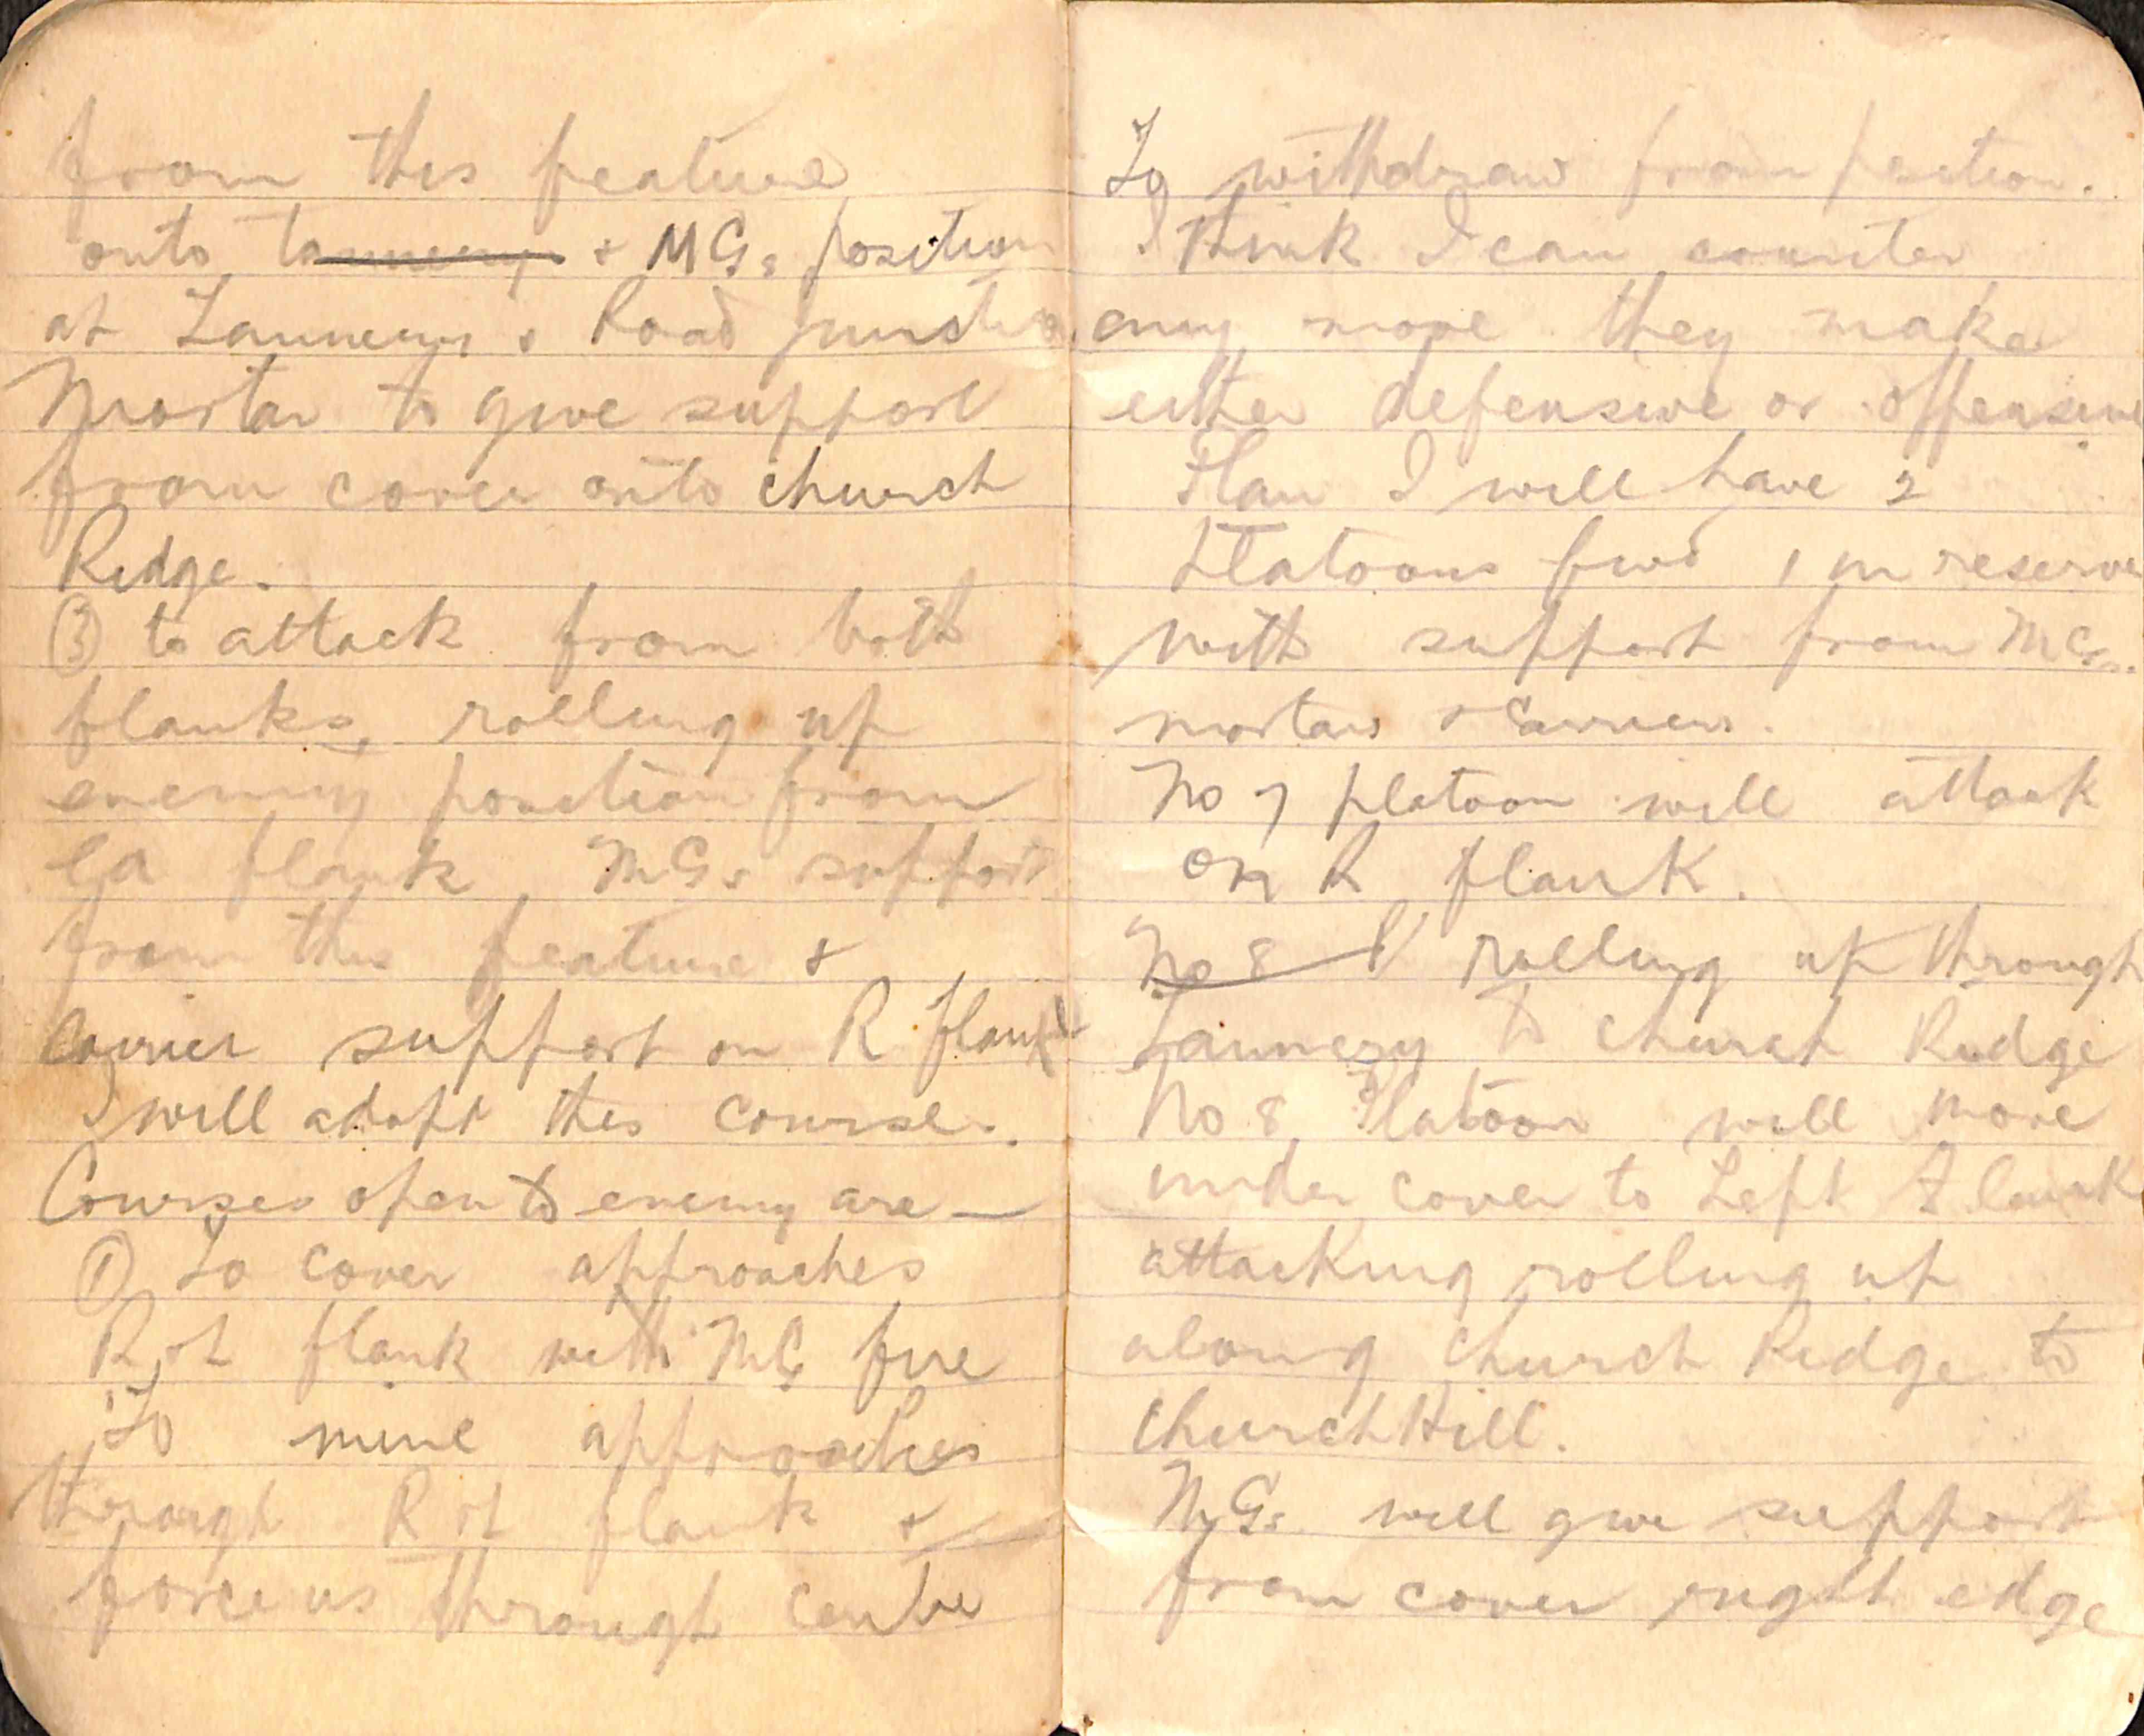 from this feature
onto tannerys + MGs position
at Tannerys & Road junction
Mortar to give support
from cover onto church
Ridge.
③ to attack from both
flanks, rolling up
enemy position from
ea flank MGs support
from this feature &
carrier support on R flank
I will adopt this course.
Courses open to enemy are —
① To cover approaches
R or L flank with MG fire
To mine approaches
through R or L flank &
force us through centre
To withdraw from position.
I think I can counter
any move they make
either defensive or offensive
Plan I will have 2
Platoons fwd 1 in reserve
with support from MGs.
mortars & Carriers.
No 7 platoon will attack
on R flank.
No 8 rolling up through
Tannery to Church Ridge
No 8 Platoon will move
under cover to Left Flank
attacking rolling up
along Church Ridge to
Church Hill.
MGs will give support
from cover right edge